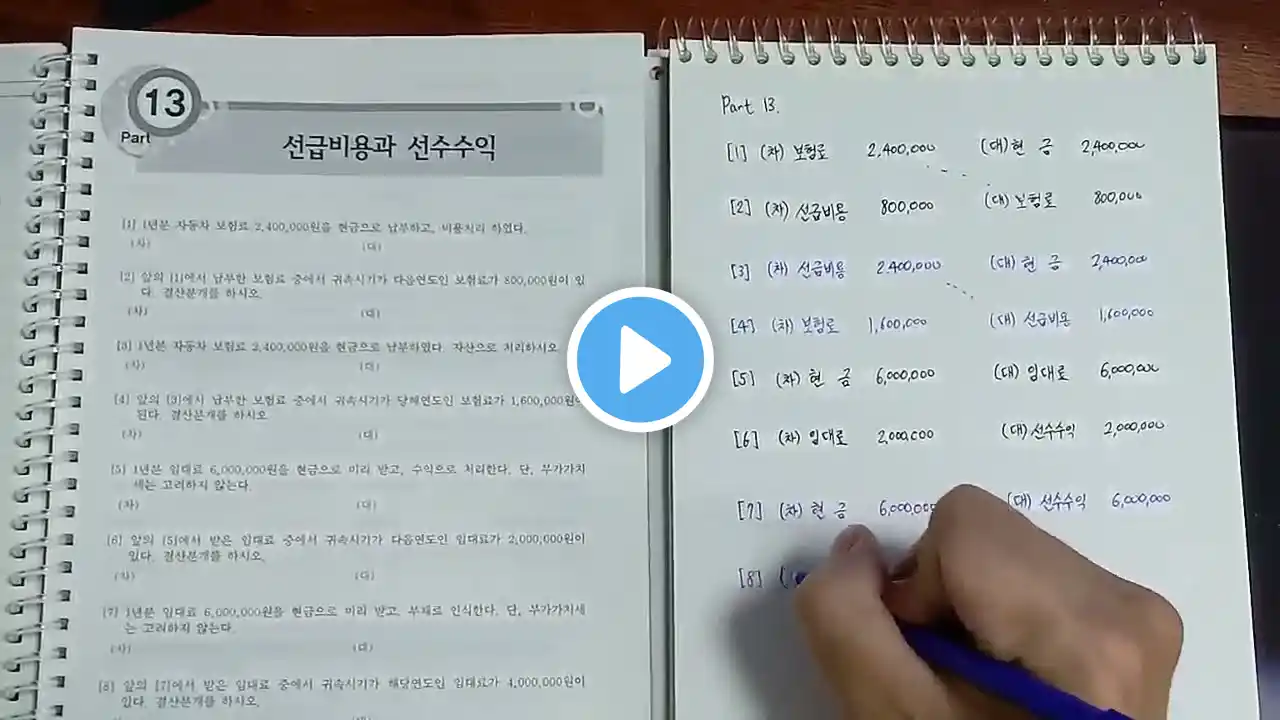 13
Part
선급비용과 선수수익
[1] 1년분 자동차 보험료 2,400,000원을 현금으로 납부하고, 비용처리 하였다.
(차) (대)
[2] 앞의 [1]에서 납부한 보험료 중에서 귀속시기가 다음연도인 보험료가 800,000원이 있
다. 결산분개를 하시오.
(차) (대)
[3] 1년분 자동차 보험료 2,400,000원을 현금으로 납부하였다. 자산으로 처리하시오
(차) (대)
[4] 앞의 [3]에서 납부한 보험료 중에서 귀속시기가 당해연도인 보험료가 1,600,000원이
된다. 결산분개를 하시오
(차) (대)
[5] 1년분 임대료 6,000,000원을 현금으로 미리 받고, 수익으로 처리한다. 단, 부가가치
세는 고려하지 않는다.
(차) (대)
[6] 앞의 [5]에서 받은 임대료 중에서 귀속시기가 다음연도인 임대료가 2,000,000원이
있다. 결산분개를 하시오.
(차) (대)
[7] 1년분 임대료 6,000,000원을 현금으로 미리 받고, 부채로 인식한다. 단, 부가가치세
는 고려하지 않는다.
(차) (대)
[8] 앞의 [7]에서 받은 임대료 중에서 귀속시기가 해당연도인 임대료가 4,000,000원이
있다. 결산분개를 하시오.
Part 13.
[1] (차) 보험료 2,400,000 (대) 현 금 2,400,000
[2] (차) 선급비용 800,000 (대) 보험료 800,000
[3] (차) 선급비용 2,400,000 (대) 현 금 2,400,000
[4] (차) 보험료 1,600,000 (대) 선급비용 1,600,000
[5] (차) 현 금 6,000,000 (대) 임대료 6,000,000
[6] (차) 임대료 2,000,000 (대) 선수수익 2,000,000
[7] (차) 현 금 6,000,000 (대) 선수수익 6,000,000
[8] (